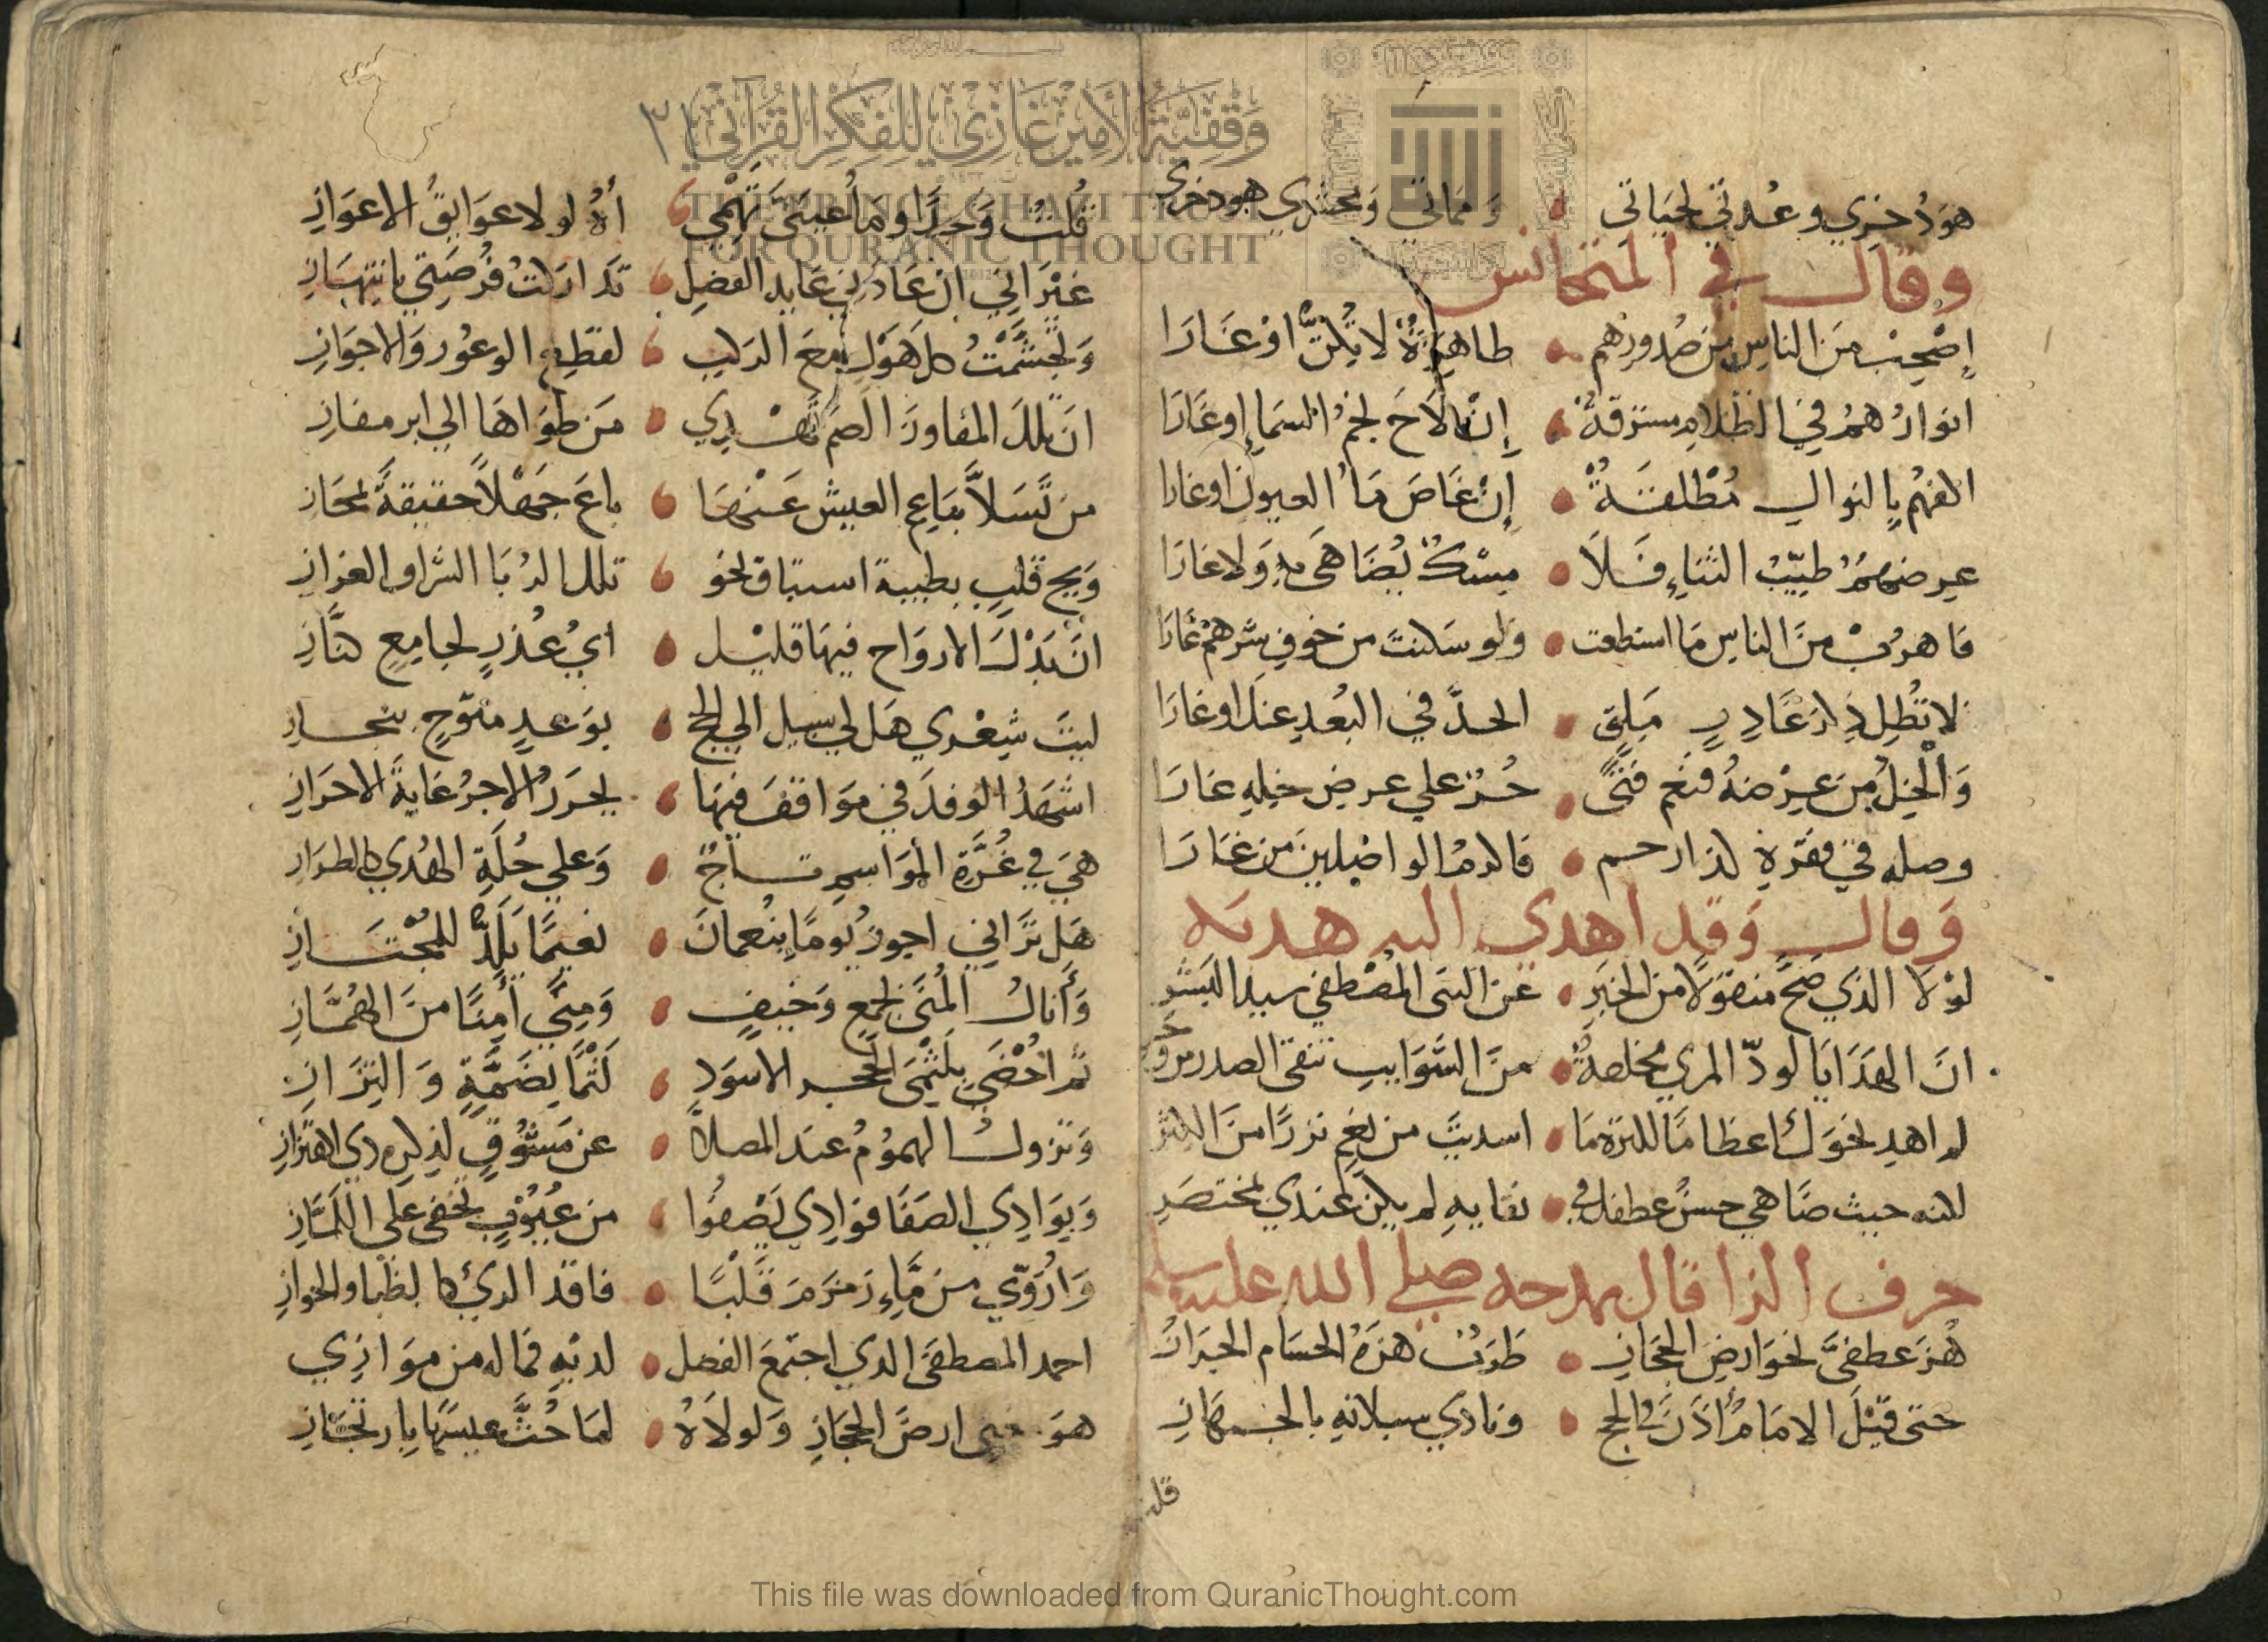 هوَ ذُخري وعُدتي لحيَاتي • وَمماتي وَمحشري هو ذخري
وقال في المتجانس
اِصْحبْ منَ الناسِ مَن صُدورُهم • طاهرَةٌ لا تُكنُّ اوْغارَا
انوارُ همُ في الظلامِ مشرقةٌ • إنْ لاَحَ نجمُ السماءِ اوغَارَا
اكفهُم بالنوال مُطْلقَةٌ • إنْ غَاضَ مَاءُ العيون اوغارا
عرضهمُ طيّبُ الثناءِ فَلاَ • مسْكٌ يُضَاهي به وَلا غارَا
فاهربْ منَ الناسِ مَا استطعت • ولو سَكنتَ من خوفِ شرهمْ غارَا
لا تُطِل ذِكرَ غَادِرٍ مَلِقٍ • الحدَّ في البُعدِ عنك اوغارَا
وَالْخِلُّ مِن عِرْضهُ فنعم فتًى • حُرٌّ علي عرض خِلِه غارَا
وصله في مقرّهِ لذا رحم • فاكرمُ الواصلين من غارَا
وَقال وَقد اهدي اليه هدية
لوْلا الذي صَحَّ منقولًا من الخبَرِ • عن النبى المُصْطفي سيد البَشر
انَ الهَدَايَا لودّ المرءِ مخلصةٌ • منَ الشَّوَايبِ تنقى الصدر من وحر
لم اهدِ نحوَكَ اعظامًا لكثرة مَا • اسديتَ من نعَمٍ نزرًا منَ الكثر
لكنه حيث ضَاهي حسنُ عطفك في • نقايهِ لم يكن عندي بمختصَرِ
حرف الزا قال يمدحه صلي الله عليه وسلم
هُزَ عطفىَّ نحوَ ارضِ الحجَازِ • طَرَبٌ هزةُ الحسَام الجرَازُ
حتى قيْلَ الامَامُ أذَنَ في الحج • ونادي سبلانهِ بالجهَازِ
قلت
٣١
قُلتُ وَجدًا وما عَيَبتي تَهْمي • أهُ لولا عوَايقُ الاعوَازِ
غيْرَ اني ان عَادَني عَايد الفضلِ • تدَاركتُ فُرصَتي بانتهَازِ
وَتجشّمْتُ كل هَوْلٍ معَ الركبِ • لقطع الوعُور وَالاجوَازِ
انَ تلكَ المفاوزَ الصم تهْدي • مَن طوَاهَا الي ابر مفازِ
من تَسَلاَّ بقَاعِ العيش عَنْهَا • باعَ جَهْلاً حقيقةً بمجَازِ
وَيح قلب بطيبة اشتاق نحو • تلك الدُبَا الشراو الغزازِ
انَ بَذْلَ الارواحِ فيهَا قليْل • ايُ عُذرٍ لجامِعٍ كنَّازِ
ليتَ شِعْري هَل لي سبيل الي الحج • بوَعدٍ متوّجٍ بنجازِ
اشهَدُ الوفدَ في موَاقفَ فيهَا • يحرَزُ الاجرُ غايةَ الاحرَازِ
هيَ في غُرَّةِ المَوَاسمِ تاجٌ • وَعلي حُلَةِ الهُدي كالطرَازِ
هَل تَرَاني اجوزُ يومًا بنُعمانَ • نعيمًا يَلَذُّ للمُجْتازِ
وَأنالُ المُنَى بجمعٍ وَخيفٍ • وَمِنًي أمِنًا منَ الهُمَّازِ
ثم احْضَي بلَثْمَى الحجر الاسوَدِ • لَثْمًا بضَمَّةٍ وَالتزَازِ
وَتزول الهمومُ عند المصلاَّ • عن مَشُوقٍ لذِكرهِ ذي اهتزازِ
وَبوَادِي الصَفَا فوَادِي يَصْفُوا • من عُيُوْبٍ تخْفى علَى اللمَّازِ
وَارُوّي من مَّاءِ زمزمَ قلْبًا • فاقدَ الريُ كا لظبا والخوازِ
احمد المصطفَى الذي اجتمعَ الفضل • لديْهِ فمالهِ من موَازِي
هوَ ارضَ الحجَازِ وَلولاَهُ • لمَا حُثَّ عيسًهَا بارتجَازِ
وقفية الأمير غازي للفكر القرآني
THE PRINCE GHAZI TRUST
FOR QURANIC THOUGHT
This file was downloaded from QuranicThought.com